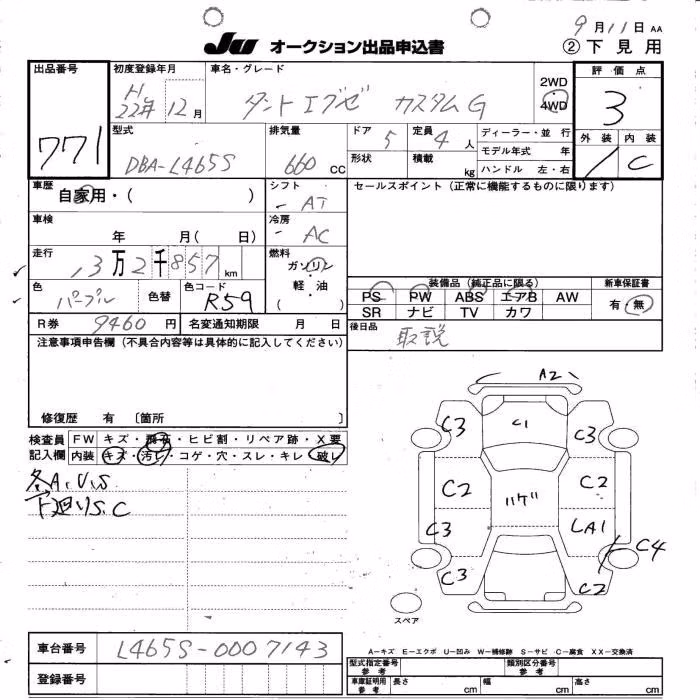 9月11日 AA
JU オークション出品申込書 ②下見用
出品番号 771
初度登録年月 H22年12月
車名・グレード ダントエグゼ カスタムG
2WD
4WD
評価点 3
外装 内装 C
型式 DBA-L465S
排気量 660 CC
ドア 5
定員 4人
ディーラー・並行
モデル年式 年
ハンドル 左・右
形状
積載 kg
車歴 自家用・( )
シフト AT
セールスポイント(正常に機能するものに限ります)
車検 年 月( 日)
冷房 AC
走行 3万2千857km
燃料 ガソリン
軽・油
( )
色 パープル 色替
色コード R59
装備品(純正品に限る)
PS PW ABS エアB AW
SR ナビ TV カワ
新車保証書
有・無
R券 9460円
名変通知期限 月 日
後日品 取説
注意事項申告欄(不具合内容等は具体的に記入してください)
修復歴 有 〔箇所 〕
検査員記入欄
FW キズ・ ・ヒビ割・リペア跡・X要
内装 キズ・汚レ・コゲ・穴・スレ・キレ・破レ
各A.U.S
下廻りS.C
A2
C3 C1 C3
C2 C2
ハゲ
C3 LA1
C4
C3 C2
スペア
車台番号 L465S-0007143
登録番号
A-キズ E-エクボ U-凹み W-補修跡 S-サビ C-腐食 XX-交換済
型式指定番号 参考
類別区分番号 参考
車庫証明用 参考
長さ cm 幅 cm 高さ cm